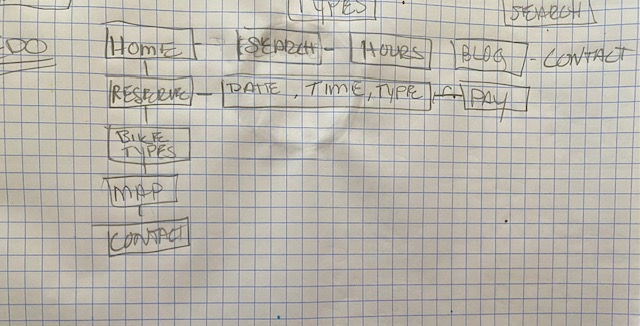 TYPES
SEARCH
EDO HOME - SEARCH - HOURS BLOG - CONTACT
RESERVE - DATE, TIME, TYPE, - PAY
BIKE
TYPES
MAP
CONTACT